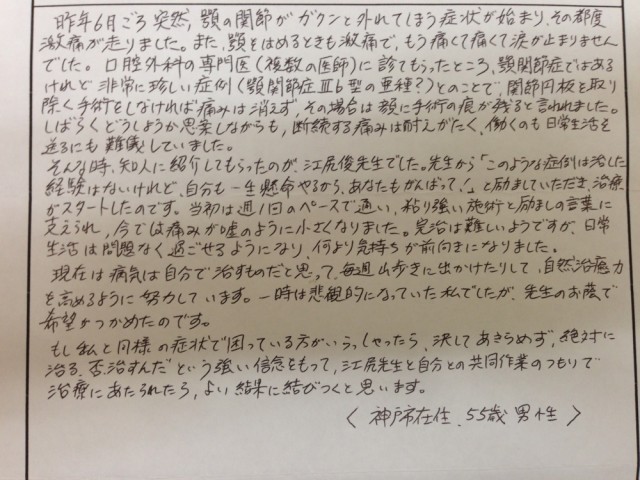 昨年6月ごろ突然、顎の関節がガクンと外れてしまう症状が始まり、その都度
激痛が走りました。また、顎をはめるときも激痛で、もう痛くて痛くて涙が止まりません
でした。口腔外科の専門医（複数の医師）に診てもらったところ、顎関節症ではある
けれど非常に珍しい症例（顎関節症Ⅲb型の亜種？）とのことで、関節円板を取り
除く手術をしなければ痛みは消えず、その場合は顔に手術の痕が残ると言われました。
しばらくどうしようか思案しながらも、断続する痛みは耐えがたく、働くのも日常生活を
送るにも難儀していました。
そんな時、知人に紹介してもらったのが、江尻俊先生でした。先生から「このような症例は治した
経験はないけれど、自分も一生懸命やるから、あなたもがんばって！」と励ましていただき、治療
がスタートしたのです。当初は週1回のペースで通い、粘り強い施術と励ましの言葉に
支えられ、今では痛みが嘘のように小さくなりました。完治は難しいようですが、日常
生活は問題なく過ごせるようになり、何より気持ちが前向きになりました。
現在は病気は自分で治すものだと思って、毎週山歩きに出かけたりして、自然治癒力
を高めるように努力しています。一時は悲観的になっていた私でしたが、先生のお蔭で
希望がつかめたのです。
もし私と同様の症状で困っている方がいらっしゃったら、決してあきらめず、絶対に
治る、否、治すんだという強い信念をもって、江尻先生と自分との共同作業のつもりで
治療にあたられたら、よい結果に結びつくと思います。
〈神戸市在住、55歳 男性〉